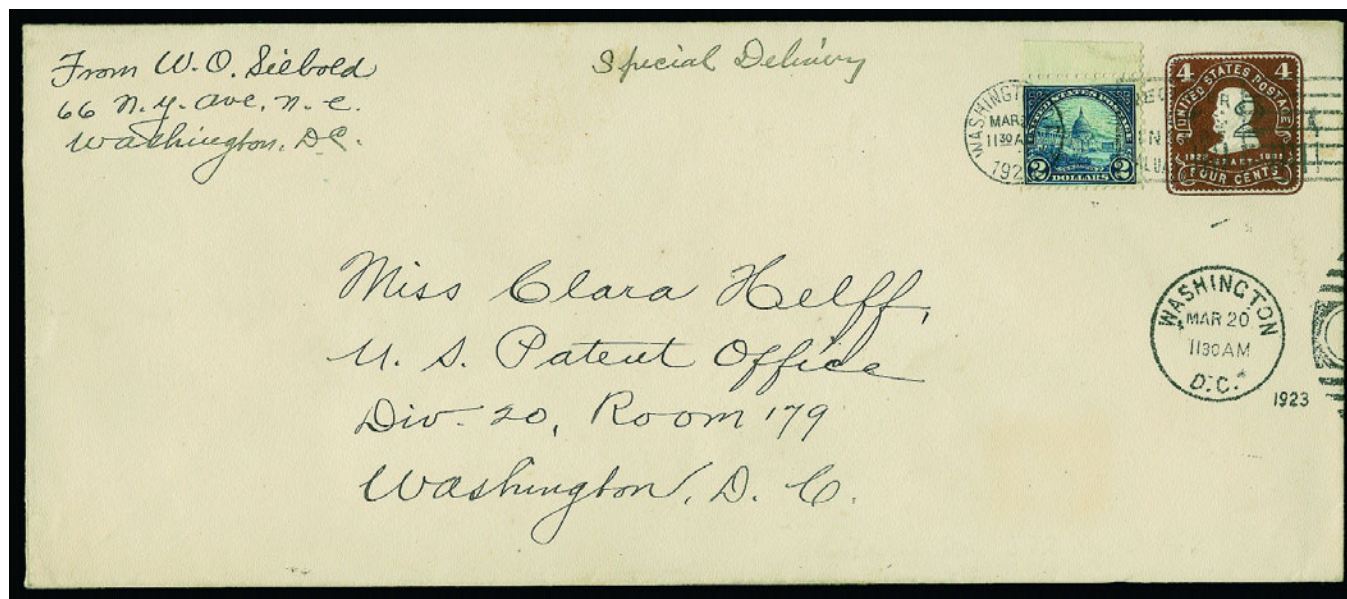 From W. O. Siebold
66 N. Y. Ave. N. E.
Washington, D.C.
Special Delivery
WASHINGT
MAR
1130 A
192
UNITED STATES POSTAGE
2 2
DOLLARS
4 4
UNITED STATES POSTAGE
FOUR CENTS
Miss Clara Helff,
U. S. Patent Office
Div. 20, Room 179
Washington, D. C.
WASHINGTON
MAR 20
1130 AM
D.C.
1923